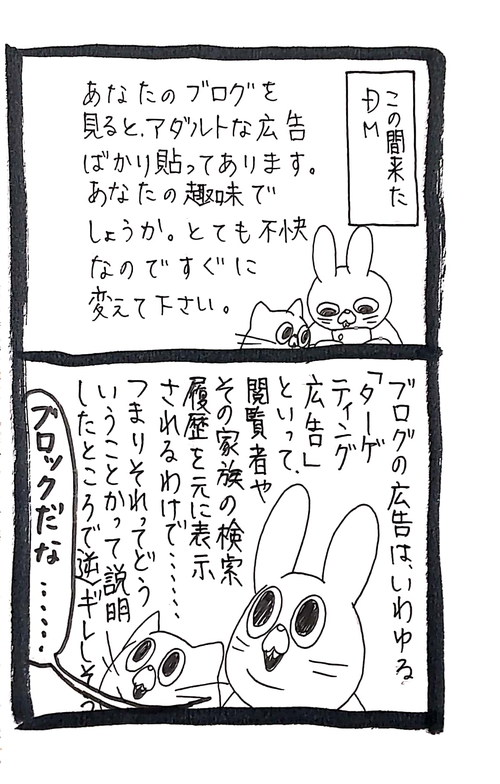 この間来た
DM
あなたのブログを
見ると、アダルトな広告
ばかり貼ってあります。
あなたの趣味で
しょうか。とても不快
なのですぐに
変えて下さい。
ブログの広告は、いわゆる
「ターゲ
ティング
広告」
といって、
閲覧者や
その家族の検索
履歴を元に表示
されるわけで……
つまりそれってどう
いうことかって説明
したところで逆ギレしそう
ブロックだな……